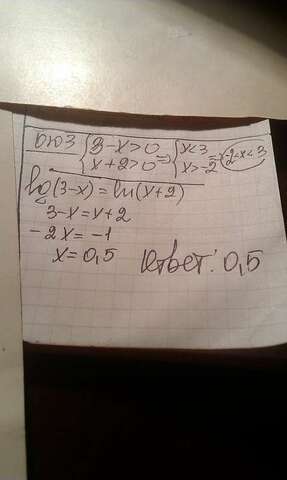 ОДЗ { 3-x>0 ⇒ { x<3 ⇒ -2<x<3
x+2>0 x>-2
lg(3-x)=ln(x+2)
3-x=x+2
-2x=-1
x=0,5 Ответ: 0,5